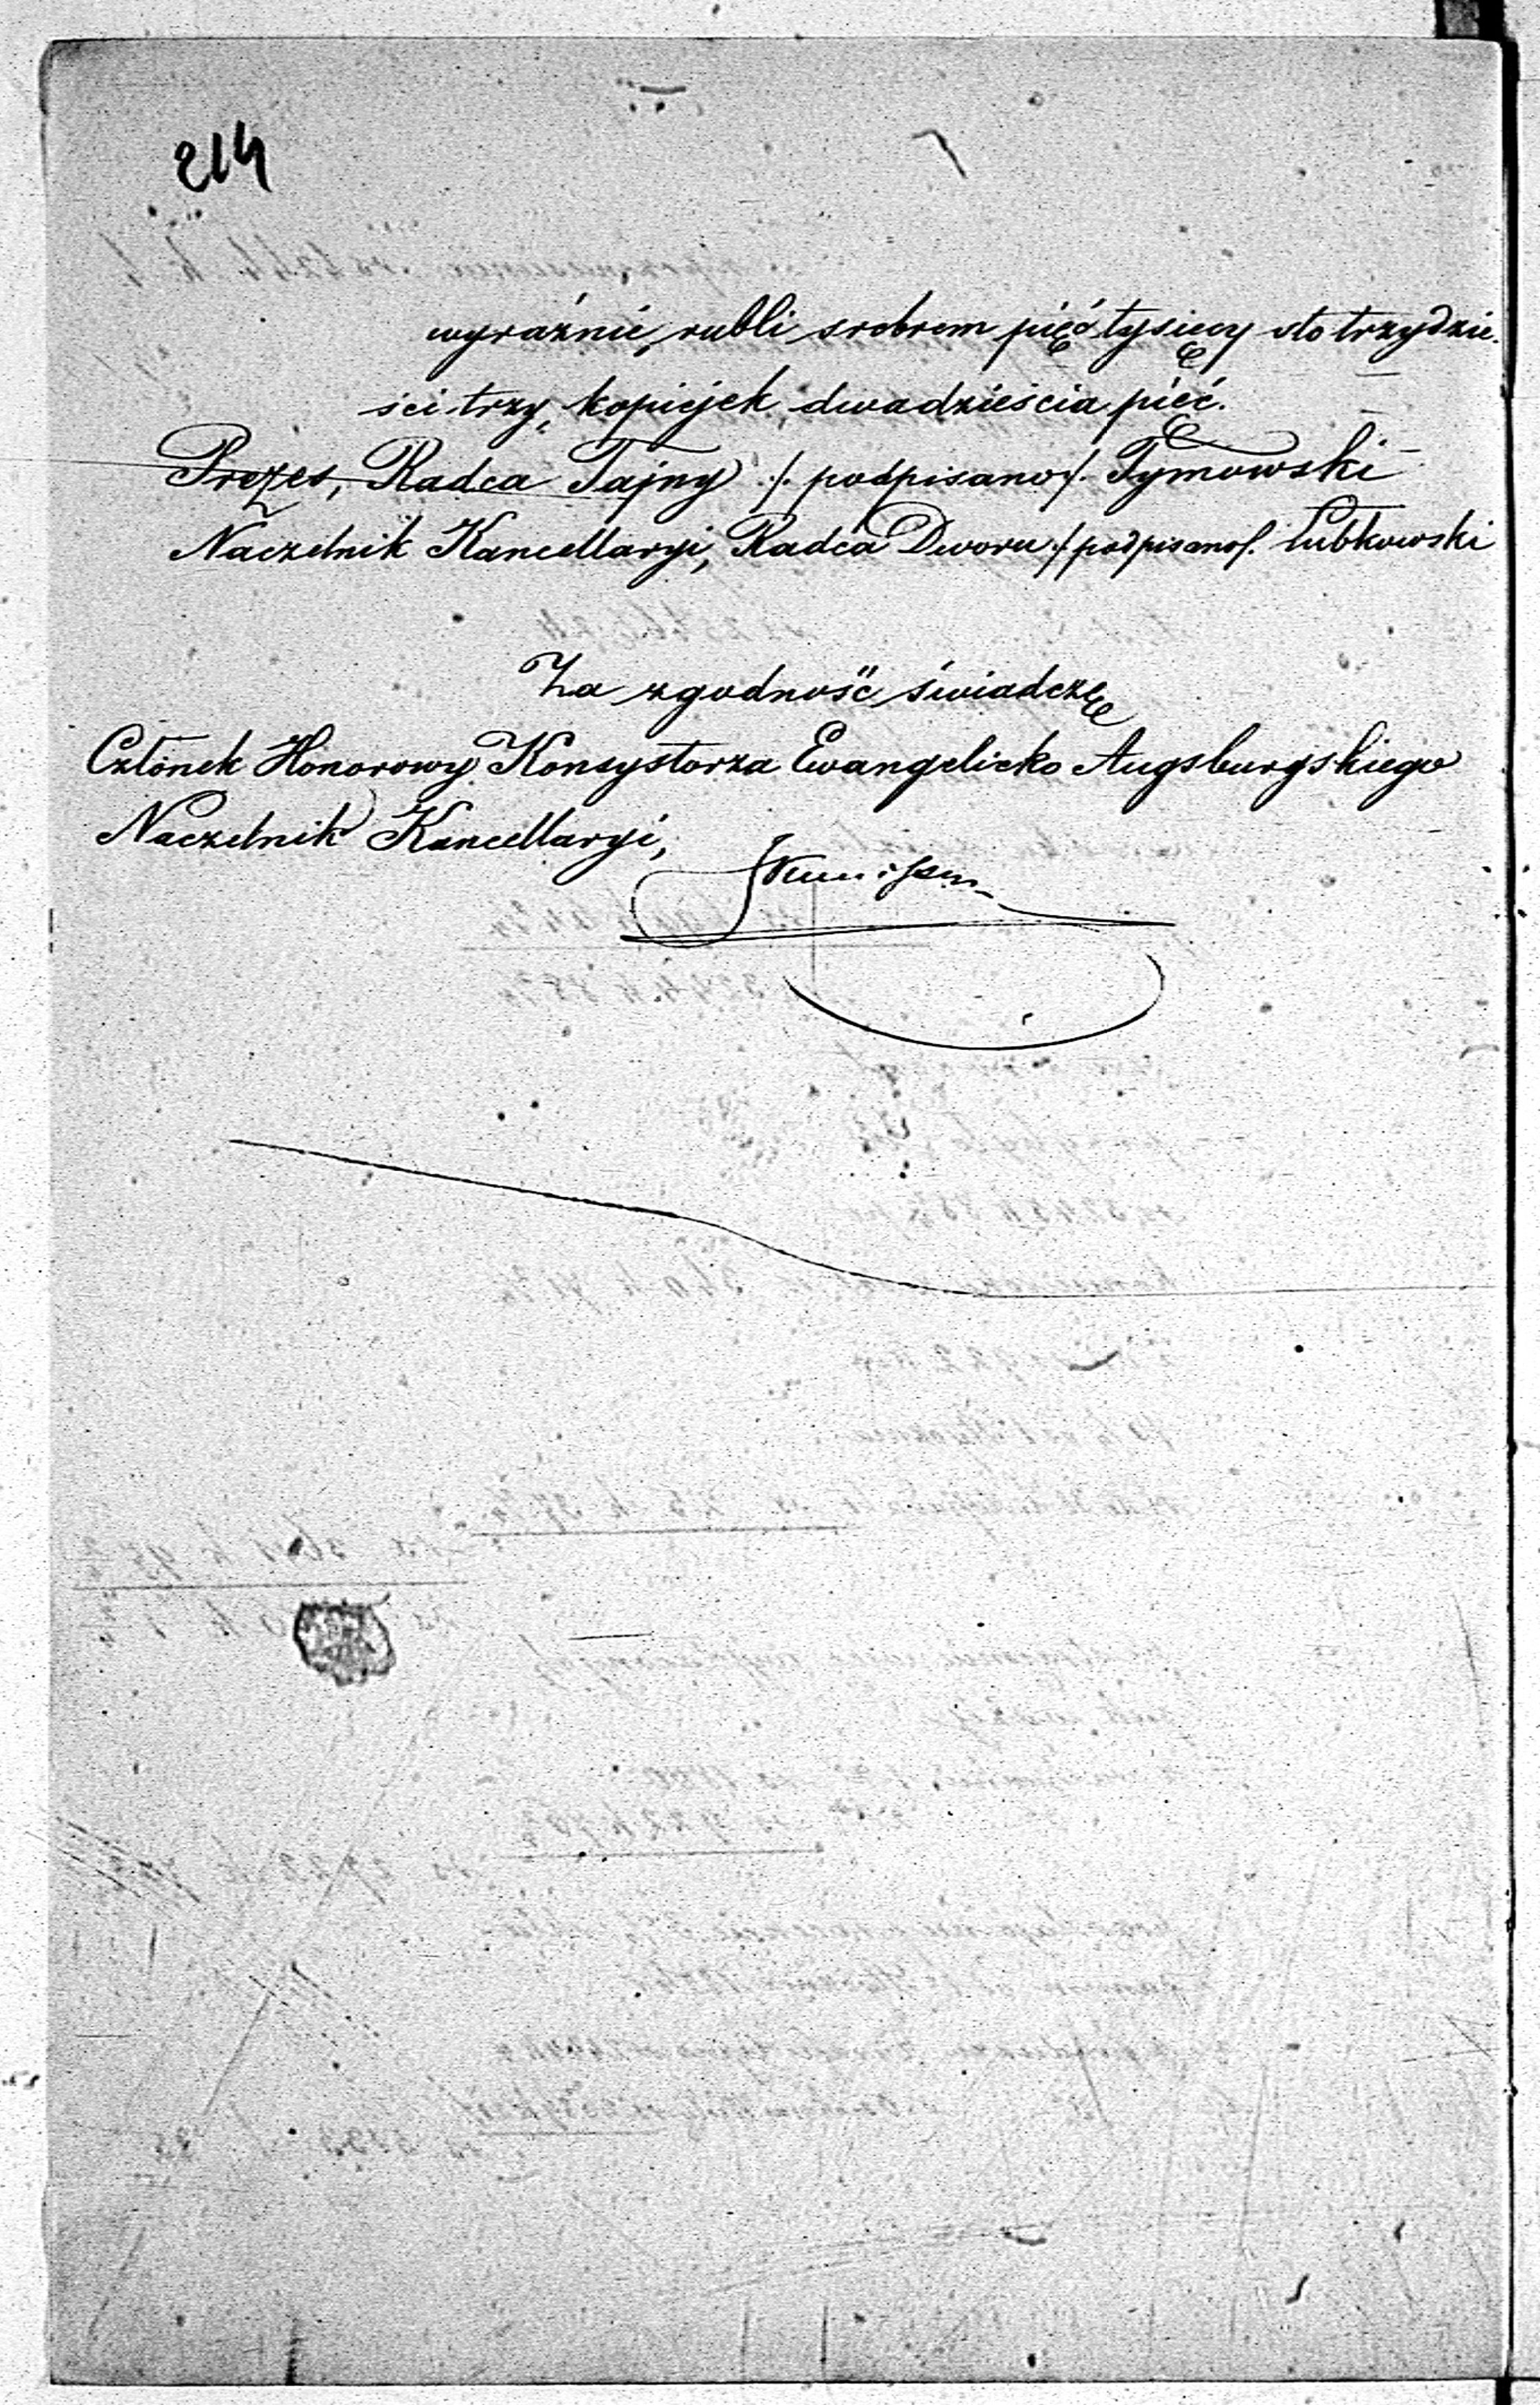 214
wyraźnie, rubli srebrem pięć tysięcy sto trzydzie-
ści trzy, kopiejek, dwadzieścia pięć.
Prezes, Radca Tajny /. podpisano /. Tymowski
Naczelnik Kancellaryi, Radca Dworu /. podpisano /. Lubkowski
Za zgodność świadczę
Członek Honorowy Konsystorza Ewangelicko Augsburgskiego
Naczelnik Kancellaryi,